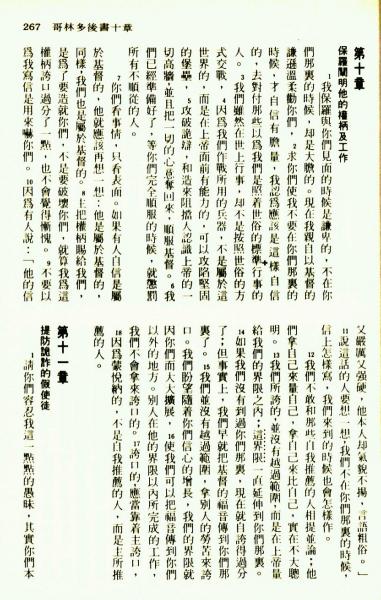 267 哥林多後書十章
第十章
保羅闡明他的權柄及工作
1我保羅與你們見面的時候是謙卑的，不在你
們那裏的時候，却是大膽的。現在我親自以基督的
謙遜溫柔勸你們，2求你們使我不要在你們那裏的
時候，才自信有膽量，我認爲應該是這樣自信
的，去對付那些以爲我們是照着世俗的標準行事的
人。3我們雖然在世上行事，却不是按照世俗的方
式交戰，4因爲我們作戰所用的兵器，不是屬於這
世界的，而是在上帝面前有能力的，可以攻陷堅固
的堡壘，5攻破詭辯，和造來阻擋人認識上帝的一
切高牆，並且把一切的心意奪回來，順服基督。6我
們已經準備好了，等你們完全順服的時候，就懲罰
所有不順從的人。
7你們看事情，只看表面。如果有人自信是屬
於基督的，他就應該再想一想：他是屬於基督的，
同樣，我們也是屬於基督的。8主把權柄賜給我們，
是爲了要造就你們，不是要破壞你們，就算我爲這
權柄誇口過分了一點，也不會覺得慚愧。9不要以
爲我寫信是用來嚇你們。10因爲有人說：「他的信
又嚴厲又強硬，他本人却氣貌不揚，言語粗俗。」
11說這話的人要想一想，我們不在你們那裏的時候，
信上怎樣寫，我們來到的時候也會怎樣作。
12我們不敢和那些自我推薦的人相提並論；他
們拿自己來量自己，拿自己來比自己，實在不大聰
明。13我們所誇的，並沒有越過範圍，而是在上帝量
給我們的界限之內；這界限一直延伸到你們那裏。
14如果我們沒有到過你們那裏，現在就自誇得過分
了；但事實上，我們早就把基督的福音傳到你們那
裏了。15我們並沒有越過範圍，拿別人的勞苦來誇
口。我們盼望隨着你們信心的增長，我們的界限就
因你們而大大擴展，16使我們可以把福音傳到你們
以外的地方。別人在他的界限以內所完成的工作，
我們不會拿來誇口的。17誇口的，應當靠着主誇口，
18因爲蒙悅納的，不是自我推薦的人，而是主所推
薦的人。
第十一章
提防詭詐的假使徒
1請你們容忍我這一點點的愚昧，其實你們本